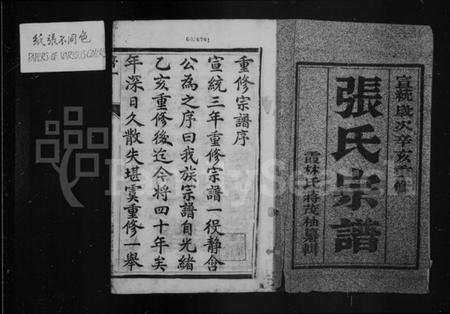 紙張不同色
PAPERS OF VARIOUS COLORS
重修宗譜序
宣統三年重修宗譜一役靜會
公為之序曰我族宗譜自光緒
乙亥重修後迄今將四十年矣
年深日久散失堪虞重修一舉
宣統歲次辛亥重修
張氏宗譜